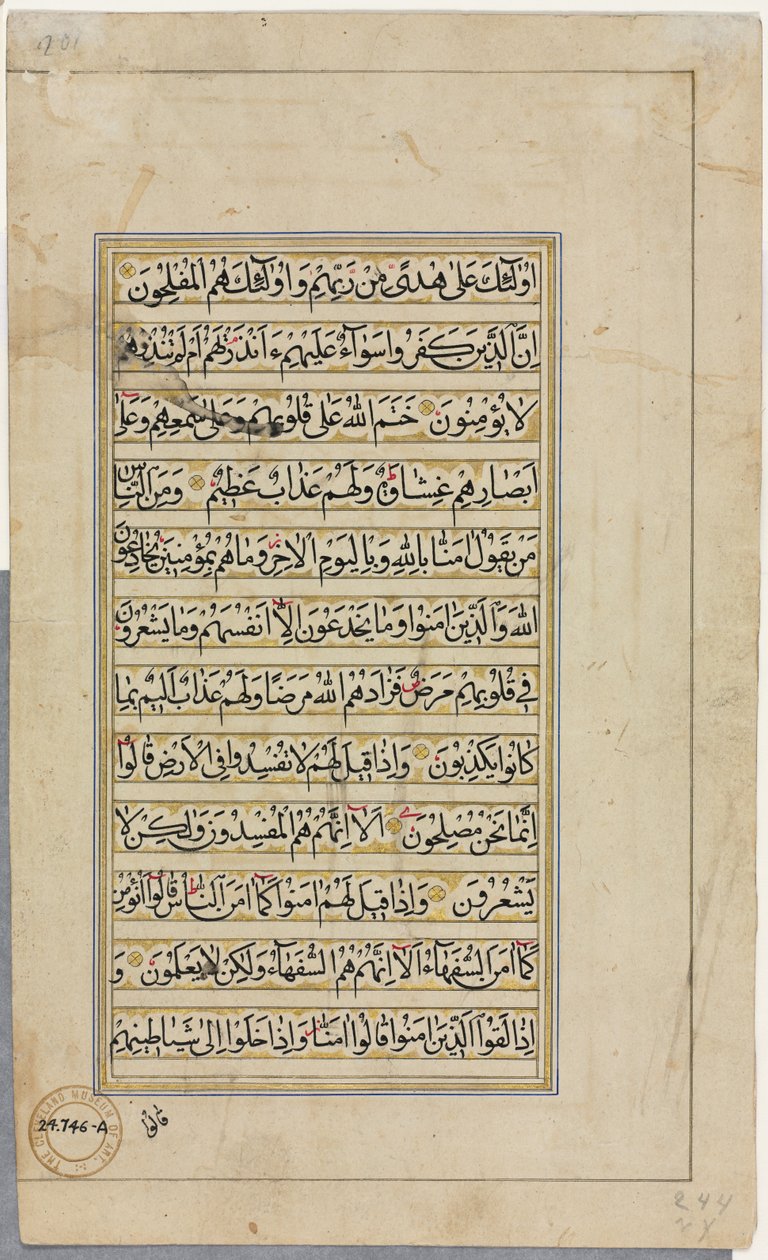 201
اُولٰٓئِكَ عَلٰى هُدًى مِنْ رَبِّهِمْ وَاُولٰٓئِكَ هُمُ الْمُفْلِحُونَ
اِنَّ الَّذِينَ كَفَرُوا سَوَآءٌ عَلَيْهِمْ ءَاَنْذَرْتَهُمْ اَمْ لَمْ تُنْذِرْهُمْ
لَا يُؤْمِنُونَ خَتَمَ اللّٰهُ عَلٰى قُلُوبِهِمْ وَعَلٰى سَمْعِهِمْ وَعَلٰٓى
اَبْصَارِهِمْ غِشَاوَةٌ وَلَهُمْ عَذَابٌ عَظِيمٌ وَمِنَ النَّاسِ
مَنْ يَقُولُ اٰمَنَّا بِاللّٰهِ وَبِالْيَوْمِ الْاٰخِرِ وَمَا هُمْ بِمُؤْمِنِينَ يُخَادِعُونَ
اللّٰهَ وَالَّذِينَ اٰمَنُوا وَمَا يَخْدَعُونَ اِلَّآ اَنْفُسَهُمْ وَمَا يَشْعُرُونَ
فِى قُلُوبِهِمْ مَرَضٌ فَزَادَهُمُ اللّٰهُ مَرَضًا وَلَهُمْ عَذَابٌ اَلِيمٌ بِمَا
كَانُوا يَكْذِبُونَ وَاِذَا قِيلَ لَهُمْ لَا تُفْسِدُوا فِى الْاَرْضِ قَالُوٓا
اِنَّمَا نَحْنُ مُصْلِحُونَ اَلَآ اِنَّهُمْ هُمُ الْمُفْسِدُونَ وَلٰكِنْ لَا
يَشْعُرُونَ وَاِذَا قِيلَ لَهُمْ اٰمِنُوا كَمَآ اٰمَنَ النَّاسُ قَالُوٓا اَنُؤْمِنُ
كَمَآ اٰمَنَ السُّفَهَآءُ اَلَآ اِنَّهُمْ هُمُ السُّفَهَآءُ وَلٰكِنْ لَا يَعْلَمُونَ وَ
اِذَا لَقُوا الَّذِينَ اٰمَنُوا قَالُوٓا اٰمَنَّا وَاِذَا خَلَوْا اِلٰى شَيَاطِينِهِمْ
قالوا
THE CLEVELAND MUSEUM OF ART
24.746-A
244